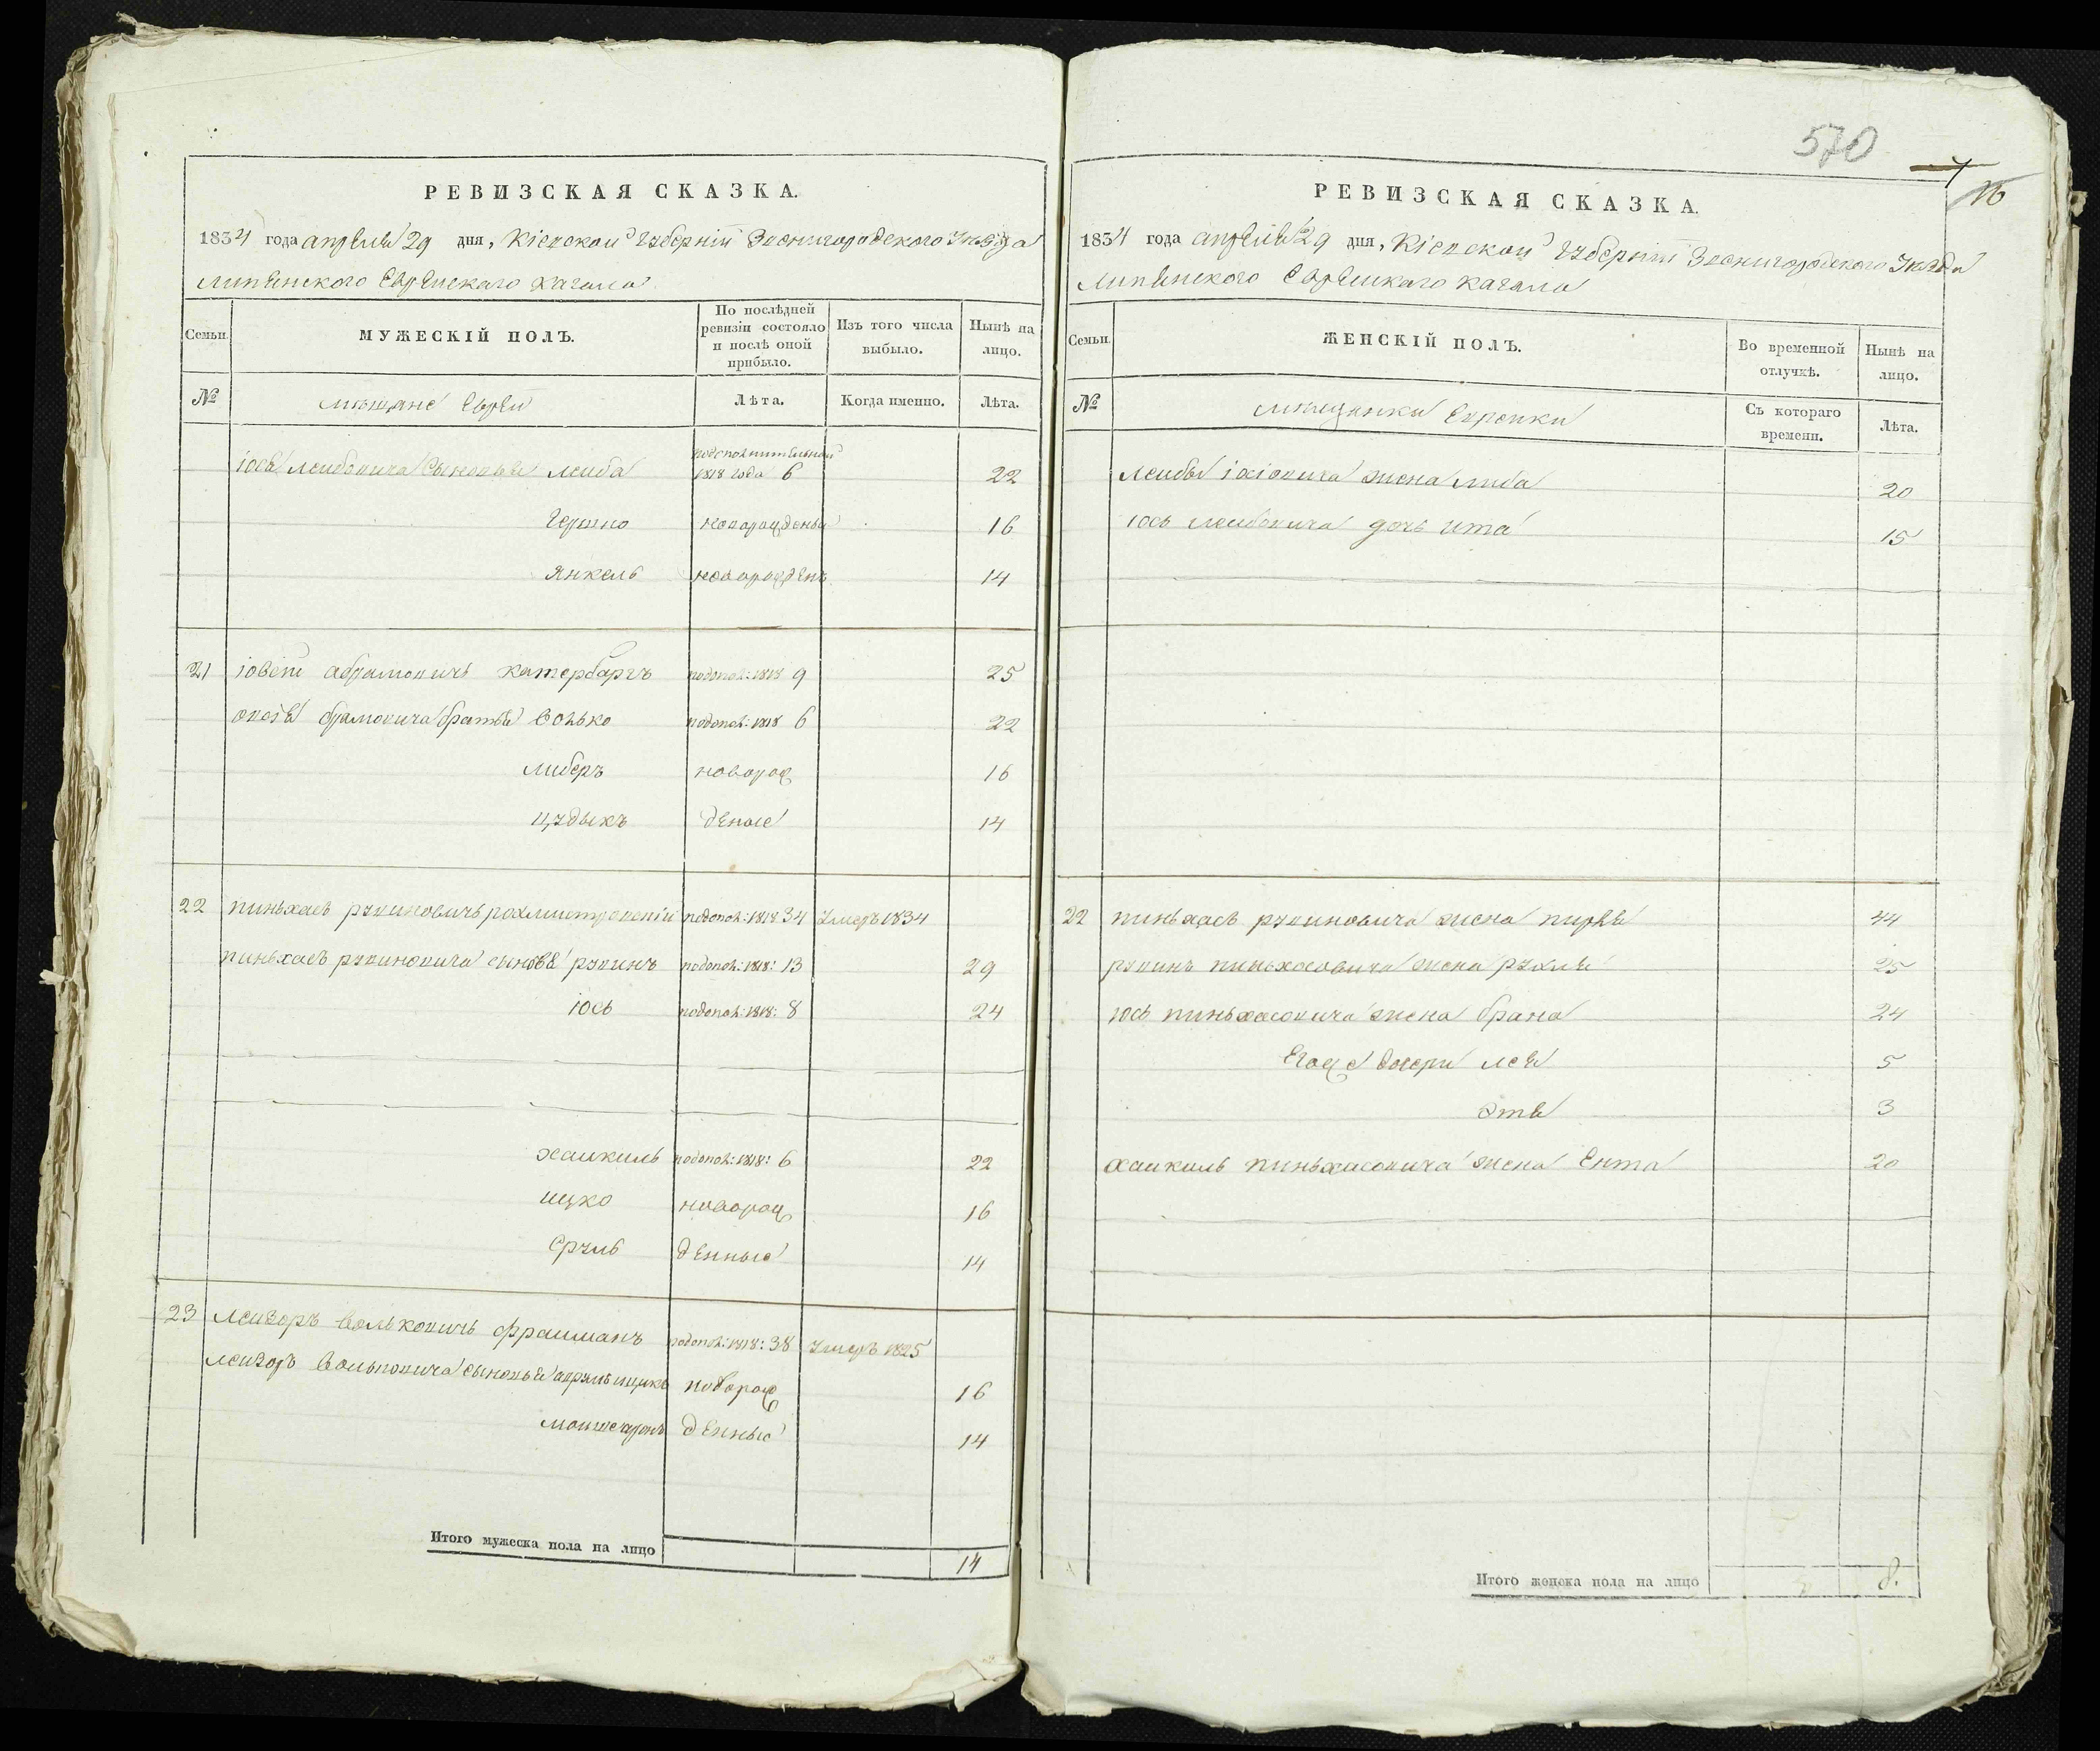 РЕВИЗСКАЯ СКАЗКА.
1834 года апреля 29 дня, Кіевской Губерніи Звенигородского Уезда
Липянского Еврейскаго Кагала
Семьи.
МУЖЕСКІЙ ПОЛЪ.
По послѣдней ревизіи состояло и послѣ оной прибыло.
Изъ того числа выбыло.
Нынѣ на лицо.
№
мещане Евреи
Лѣта.
Когда именно.
Лѣта.
іось Леибовича сыновья Леиба 1818 года 6 22
Гершко новорожденый 16
Янкель новорожденъ 14
21 Абрамовичъ Катербаргъ подопол: 1818 9 25
братья Волько подопол: 1818 6 22
Либеръ новорож 16
Цудыкъ деные 14
22 Пиньхасъ Рувиновичь Рохмистровскій подопол: 1818 34 умеръ 1834
Пиньхасъ Рувиновича синовя Рувинъ подопол: 1818: 13 29
іось подопол: 1818: 8 24
Хаикиль подопол: 1818: 6 22
ицко новорож 16
Сруль денные 14
23 Леизоръ Вольковичь Фраиманъ подопол: 1818: 38 умеръ 1825
Леизоръ Вольковича сыновья новорож 16
денные 14
Итого мужеска пола на лицо 14
570
7
16
РЕВИЗСКАЯ СКАЗКА.
1834 года апреля 29 дня, Кіевской Губерніи Звенигородского Уезда
Липянского Еврейскаго Кагала
Семьи.
ЖЕНСКІЙ ПОЛЪ.
Во временной отлучкѣ.
Нынѣ на лицо.
№
мещанки Евреики
Съ котораго времени.
Лѣта.
Леибы іосіовича жена Либа 20
іось Леибовича дочь Ита 15
22 Пиньхасъ Рувиновича жена Пирля 44
Рувинъ Пиньхасовича жена Рухля 25
іось Пиньхасовича жена Брана 24
Егоже дочери Лея 5
Этя 3
Хаикиль Пиньхасовича жена Ента 20
Итого женска пола на лицо 8.